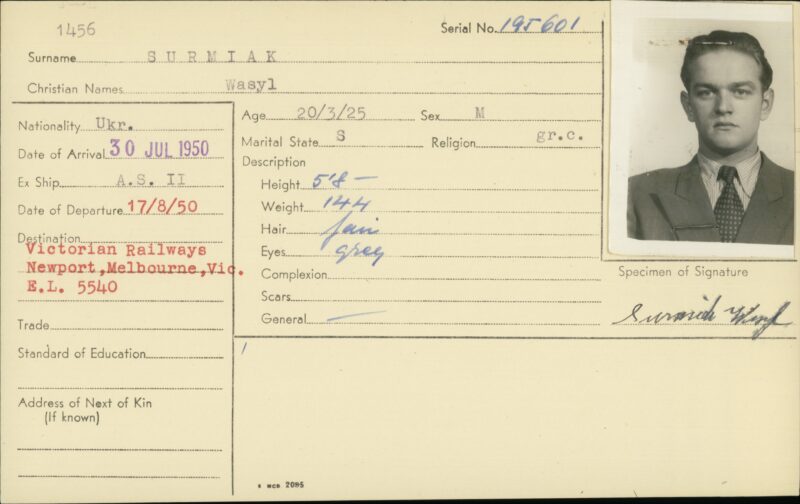 1456
Serial No. 195601
Surname SURMIAK
Christian Names Wasyl
Nationality Ukr.
Date of Arrival 30 JUL 1950
Ex Ship A.S. II
Date of Departure 17/8/50
Destination
Victorian Railways
Newport,Melbourne,Vic.
E.L. 5540
Trade
Standard of Education
Address of Next of Kin
(If known)
Age 20/3/25 Sex M
Marital State S Religion gr.c.
Description
Height 5'8 —
Weight 144
Hair fair
Eyes grey
Complexion
Scars
General —
Specimen of Signature
Surmiak Wasyl
6 WCB 2095